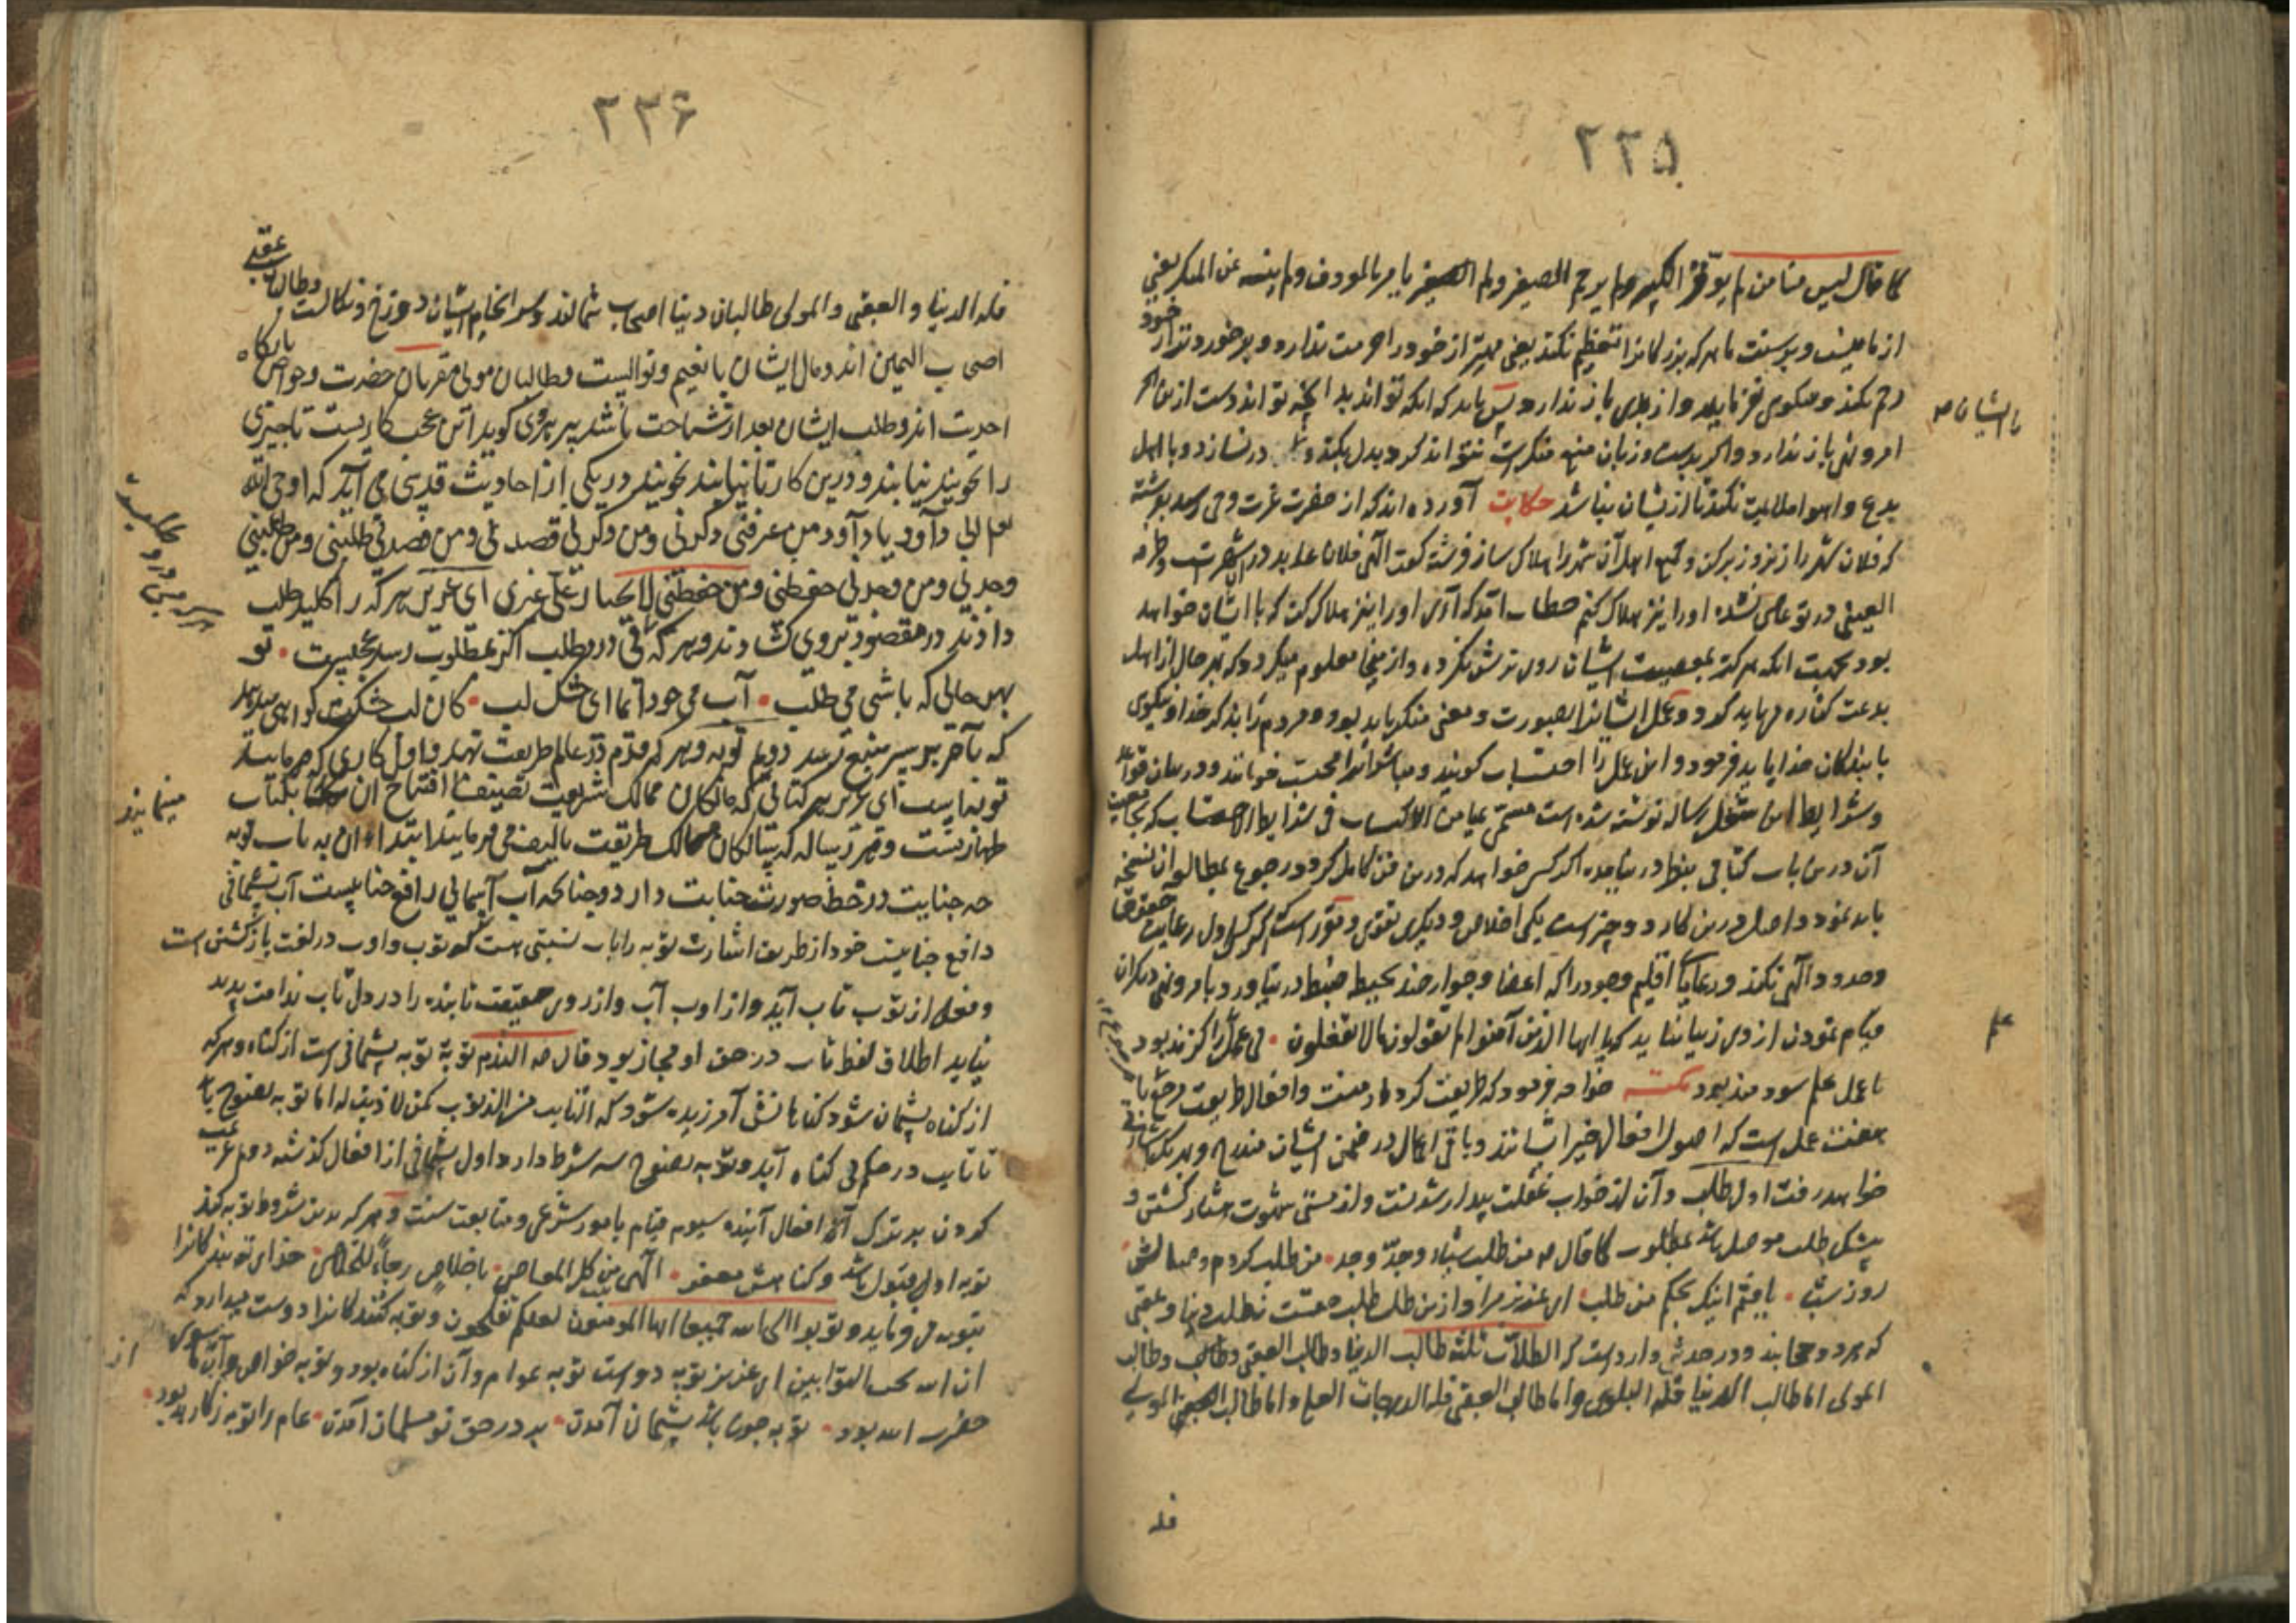 ۲۲۵
کما قال لیس منا من لم یوقر الکبیر ولم یرحم الصغیر ولم یامر بالمعروف ولم ینه عن المنکر یعنی
از ما نیست و بر سنت ما هر که بزرگانرا تعظیم نکند یعنی مهتر از خود را حرمت ندارد و بر خورد تر از خود
رحم نکند و بنکوی نفرماید و از بدی باز ندارد پس باید که انکه تواند بدانچه تواند دست ازین
امر و نهی باز ندارد و اگر بدست و زبان منع منکرات نتواند کرد بدل بکند و در نسازد و با اهل
بدع و اهوا ملایمت نکند تا از یشان نباشد حکایت آورده اند که از حضرت عزت وحی رسد بفرشته
با ایشان
که فلان شهر را زیر و زبر کن و جمیع اهل آن شهر را هلاک ساز فرشته گفت الهی فلان عابد در آن شهر است و طرفه
العینی در تو عاصی نشده او را نیز هلاک کنم خطاب آمد که آری او را نیز هلاک کن که با ایشان خواهد
بود بجهت انکه هرگز بمعصیت ایشان روی ترش نکرده و از ینجا معلوم میگردد که بهر حال از اهل
بدعت کناره می باید کرد و عمل ایشانرا بصورت و معنی منکر باید بود و مردم را بذکر خدا و نیکوی
با بندگان خدا باید فرمود و این عمل را احتساب گویند و مباشر انرا محتسب خوانند و در بیان قواعد
و شرایط این شغل رساله نوشته شده است مسمی بـ الاکتساب فی شرایط الاحتساب که بجامعیت
آن درین باب کتابی بنظر در نیامده اگر کسی خواهد که درین فن کامل گردد رجوع بمطالعه آن نسخه
باید نمود و اصل درین کار دو چیز است یکی اخلاص و دیگری تقوی و مقرر است که اگر کسی اول رعایت حقوق
و حدود الهی نکند و رعایا اقلیم وجود را که اعضا و جوارحند بحیطه ضبط در نیاورد بامر و نهی دیگران
قیام نمودن از وی زیبا ننماید که یا ایها الذین آمنوا لم تقولون ما لا تفعلون • بی عمل را گزند بود
علم
با عمل علم سودمند بود نکته خواجه فرمود که طریقت کردار منست و افعال طریقت مرجع با
هفت عمل است که اصول افعال خیر ایشانند و باقی اعمال در ضمن ایشان مندرج و بهر یک اشارتی
خواهد رفت اول طلب و آن از خواب غفلت بیدار شدنست و از مستی شهوت هشیار گشتن و
بیشک طلب موصل باشد بمطلوب کما قال من طلب شیئا و جد وجد • من طلب کردم وصالش
روز و شب • یافتم اینک بحکم من طلب • ای عزیز مراد ازین طلب طلب حقست نه طلب دنیا و عقبی
که هر دو حجابند و در حدیثی وارد است که الطلاب ثلثه طالب الدنیا و طالب العقبی و طالب
المولی اما طالب الدنیا فله البلوی و اما طالب العقبی فله الدرجات العلی و اما طالب المولی
فله
۲۲۶
فله الدنیا و العقبی و المولی طالبان دنیا اصحاب شمالند و سر انجام ایشان دوزخ و نکالست و طالبان عقبی
اصحاب الیمین اند و مآل ایشان با نعیم و نوالست و طالبان مولی مقربان حضرت و خواص بارگاه
احدیت اند و طلب ایشان بعد از شناخت باشد پیر هری گوید این عجب کاریست تا چیزی
را نجویند نیابند و درین کار تا نیابند نجویند در یکی از احادیث قدسی می آید که اوحی الله
تعالی الی داود یا داود من عرفنی ذکرنی و من ذکرنی قصدنی و من قصدنی طلبنی و من طلبنی
وجدنی و من وجدنی حفظنی و من حفظنی لا یختار علی غیری ای عزیز هر که را کلید طلب
دادند در مقصود بروی کشادند و هر که باقی در طلب اگر بمطلوب رسد عجیبست • تو
بهر حالی که باشی می طلب • آب می جو دائما ای خشک لب • کان لب خشکت گواهی میدهد
که بآخر بر سر منبع رسد دویم توبه و هر که قدم در عالم طریقت نهد اول کاری که فرمایند
توبه است ای عزیز هر کتابی که مالکان ممالک شریعت تصنیف افتتاح آن بکتاب
مینمایند
طهارتست و هر رساله که سالکان ممالک طریقت تالیف می فرمایند ابتداء آن به باب توبه
چه جنایت در خط صورت جنابت دارد و چنانکه آب آسمانی رافع جنابتست آب پشیمانی
دافع جنایت خود از طریق اشارت توبه را باب نسبتی هست که توب و اوب در لغت بازگشتن است
و فعل از توب تاب آید و از اوب آب و از روی حقیقت تا بنده را در دل تاب ندامت پدید
نیاید اطلاق لفظ تاب در حق او مجاز بود قال الندم توبة توبه پشیمانی است از گناه و هر که
از گناه پشیمان شود گناهانش آمرزیده شود که التایب من الذنوب کمن لا ذنب له اما توبه نصوح باید
تا تایب در حکم بی گناه آید و توبه نصوح سه شرط دارد اول پشیمانی از افعال گذشته دوم عزیمت
کردن بر ترک آن افعال آینده سیوم قیام بامور شرعی و متابعت سنت و هر که بدین شروط توبه کند
توبه او قبول باشد و گناهش مغفور • الهی تبت من کل المعاصی • باخلاص رجاء للخلاص • خدای تو بندگانرا
بتوبه می فرماید و توبوا الی الله جمیعا ایها المؤمنون لعلکم تفلحون و توبه کنندگانرا دوست میدارد که
ان الله یحب التوابین ای عزیز توبه دو است توبه عوام و آن از گناه بود و توبه خواص و آن از ما سوی
از
حضرت الله بود • توبه چون باشد پشیمان آمدن • بر در حق نو مسلمان آمدن • عام را توبه ز کار بد بود •